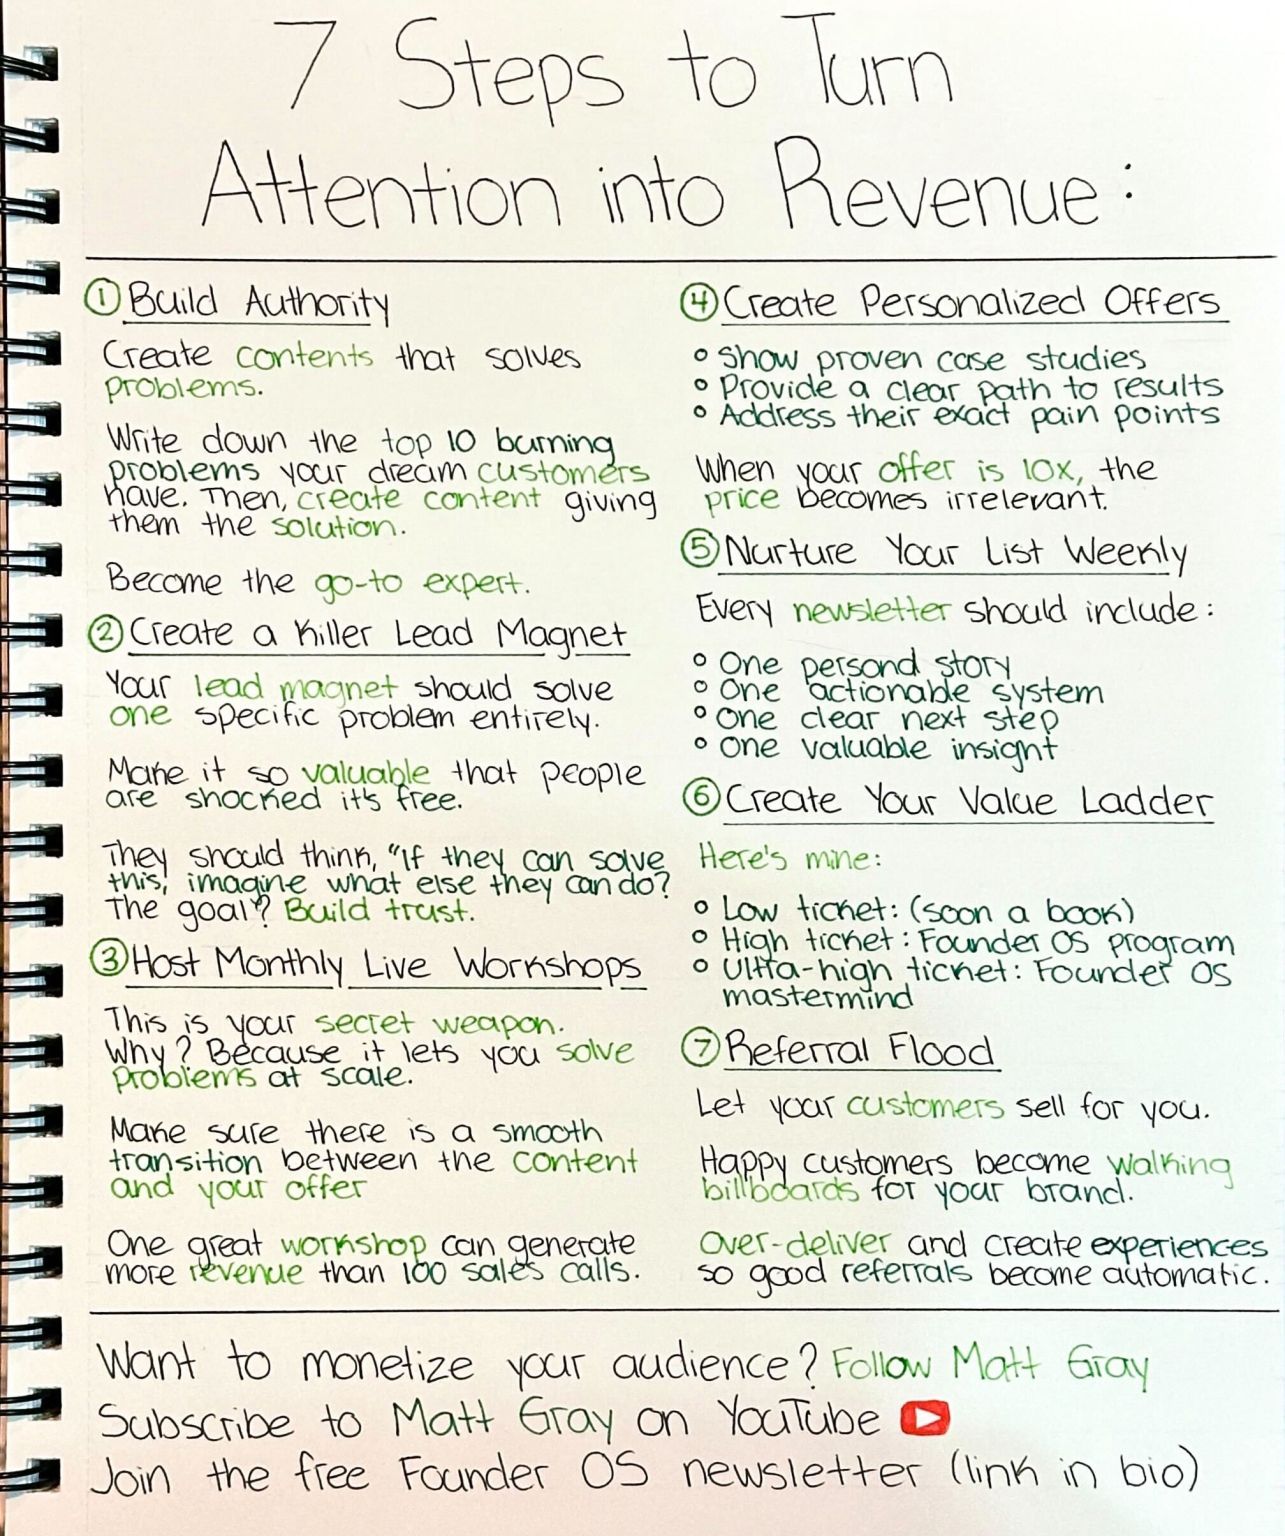 7 Steps to Turn
Attention into Revenue:
① Build Authority
Create contents that solves
problems.
Write down the top 10 burning
problems your dream customers
have. Then, create content giving
them the solution.
Become the go-to expert.
② Create a Killer Lead Magnet
Your lead magnet should solve
one specific problem entirely.
Make it so valuable that people
are shocked it's free.
They should think, "If they can solve
this, imagine what else they can do?
The goal? Build trust.
③ Host Monthly Live Workshops
This is your secret weapon.
Why? Because it lets you solve
problems at scale.
Make sure there is a smooth
transition between the content
and your offer
One great workshop can generate
more revenue than 100 sales calls.
④ Create Personalized Offers
° Show proven case studies
° Provide a clear path to results
° Address their exact pain points
When your offer is 10x, the
price becomes irrelevant.
⑤ Nurture Your List Weekly
Every newsletter should include:
° One personal story
° One actionable system
° One clear next step
° One valuable insight
⑥ Create Your Value Ladder
Here's mine:
° Low ticket: (soon a book)
° High ticket: Founder OS program
° Ultra-high ticket: Founder OS
mastermind
⑦ Referral Flood
Let your customers sell for you.
Happy customers become walking
billboards for your brand.
Over-deliver and create experiences
so good referrals become automatic.
Want to monetize your audience? Follow Matt Gray
Subscribe to Matt Gray on YouTube
Join the free Founder OS newsletter (link in bio)